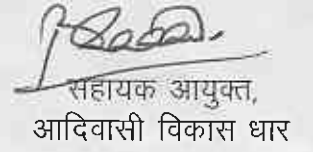 सहायक आयुक्त,
आदिवासी विकास धार